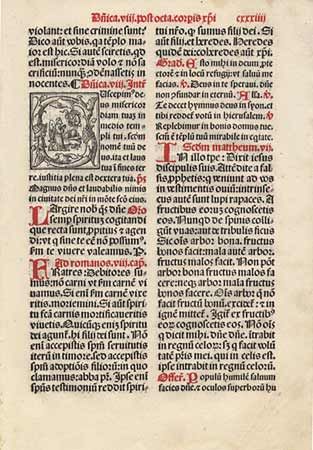 Dñica.viij.post octa.corpis xp̄i
cxxxiiij
violant: et sine crimine sunt?
Dico aūt vobis. qa tēplo maior
est hic. Si aūt sciretis. qd est.
misericordiā volo et nō sacrificiū:
nūqꝫ cōdēnassetis innocentes.
Dñica.viij. Intr̄
Suscepim⁹ deus
misericordiam
tuaꝫ in medio
templi tui. scd̄m
nomē tuū deus.
ita et laus
tua ī fines terre.
iusticia plena est dextera tua. ps̄
Magnus dñs et laudabilis nimis
in ciuitate dei nr̄i in mōte scō ei⁹.
Largire nob̄ qs̄ dñe Oro
semp spiritum cogitandi
que recta sunt: ꝓpitius ⁊ agendi:
vt q̄ sine te eē non possum⁹.
sm̄ te viuere valeamus. P.
Ad romanos.viij.cap̄.
Fratres: Debitores sumus.
non carni vt sm̄ carnē viuamus.
Si em̄ sm̄ carnē vixeritis.
moriemini. Si aūt spiritu
facta carnis mortificaueritis
viuetis. Quicūqꝫ em̄ spiritu
dei agunt̄. hi filij dei sunt. Nō
em̄ accepistis spm̄ seruitutis
iterū in timore. sed accepistis
spm̄ adoptiōis filioꝝ: in quo
clamamus: abba pr̄. Ipse em̄
spūs testimoniū reddidit spiritui
nr̄o. q sumus filij dei. Si
aūt filij. et heredes. Heredes
quidē dei: coheredes aūt xp̄i.
Grad. Esto mihi in deum ꝓtectorē
⁊ in locū refugij: vt saluū me
facias. v̄ Deus in te speraui. dñe
nōn ꝯfundar in eternū. Alla. v̄
Te decet hymnus deus in syon. et tibi
reddet̄ votū in hierusalem.
v̄ Replebimur in bonis domus tue.
scm̄ ē tēplū tuū mirabile in eqtate.
Scd̄m mattheum.vij.
In illo tp̄e: Dixit iesus
discipulis suis. Attēdite a falsis
ꝓphetis: q veniūt ad vos
in vestimentis ouiū: intrinsecus
aūt sunt lupi rapaces. A
fructibus eoruꝫ cognoscetis
eos. Nunqd de spinis colligūt
vuas: aut de tribulis ficus
Sic ois arbor bona. fructus
bonos facit: mala aūt arbor.
malos fructus facit. Non pōt
arbor bona fructus malos facere:
neqꝫ arbor mala fructus
bonos facere. Ois arbor q̄ nō
facit fructū bonū. excidet̄ ⁊ in
ignem mittet̄. Igit̄ ex fructib⁹
eoꝝ cognoscetis eos. Nō ois q
dicit mihi. dñe dñe. ītrabit in
regnū celoꝝ: sꝫ q facit volūtatē
pr̄is mei. qui in celis est.
ipse intrabit in regnū celoꝝ.
Offer̄. Populū humilē saluum facies
dñe. ⁊ oculos superboꝝ hu